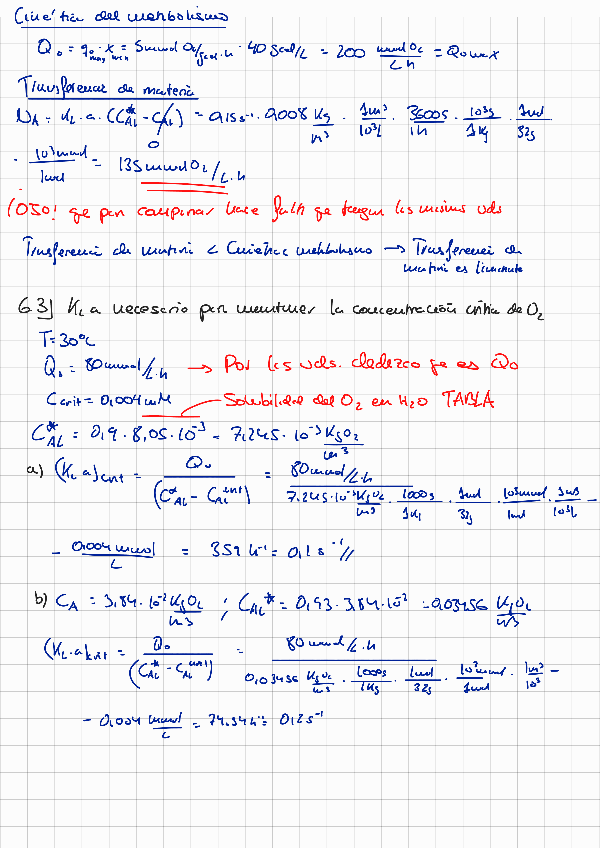 Cinética del metabolismo
Qo = qo max · Xmax = 5 mmol O2/gcel·h · 40 gcel/L = 200 mmol O2/L h = Qo max
Transferencia de materia
NA = KL · a · (C*AL - CAL) = 0,15 s-1 · 0,008 Kg/m3 · 1m3/10^3 L · 3600s/1h · 10^3 g/1Kg · 1mol/32g
0
· 10^3 mmol/1mol = 135 mmol O2/L·h
¡OJO! qe para comparar hace falta qe tengan las mismas uds
Transferencia de materia < Cinética metabolismo → Transferencia de
materia es limitante
6.3] KL a necesario para mantener la concentración crítica de O2
T = 30ºC
Qo = 80 mmol/L·h → Por las uds. deduzco qe es Qo
Ccrit = 0,004 mM Solubilidad del O2 en H2O TABLA
C*AL = 0,9 · 8,05 · 10^-3 = 7,245 · 10^-3 Kg O2/m3
a) (KL a)crit = Qo/(C*AL - CAL crit) = 80 mmol/L·h / 7,245·10^-3 Kg O2/m3 · 1000g/1Kg · 1mol/32g · 10^3 mmol/1mol · 1m3/10^3 L -
- 0,004 mmol/L = 359 h-1 = 0,1 s-1 //
b) CA = 3,84 · 10^-2 Kg O2/m3 ; CAL* = 0,93 · 3,84 · 10^-2 = 0,03456 Kg O2/m3
(KL·a)crit = Qo/(C*AL - CAL crit) = 80 mmol/L·h / 0,03456 Kg O2/m3 · 1000g/1Kg · 1mol/32g · 10^3 mmol/1mol · 1m3/10^3 -
- 0,004 mmol/L = 74.34 h-1 = 0,12 s-1